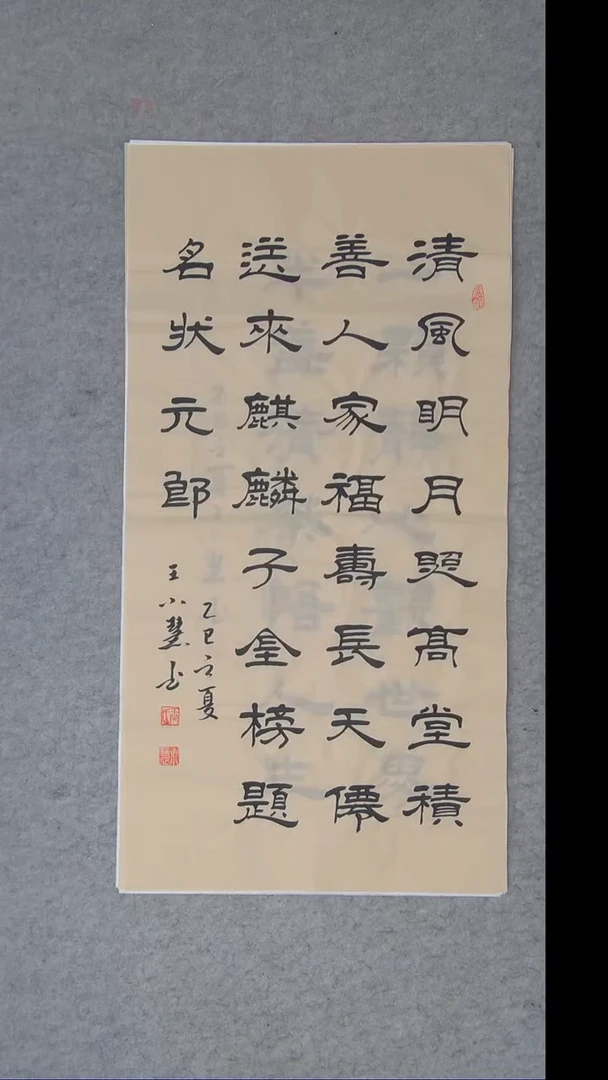 清風明月照高堂積
善人家福壽長天僊
送來麒麟子金榜題
名状元郎
乙巳立夏
王小慧书